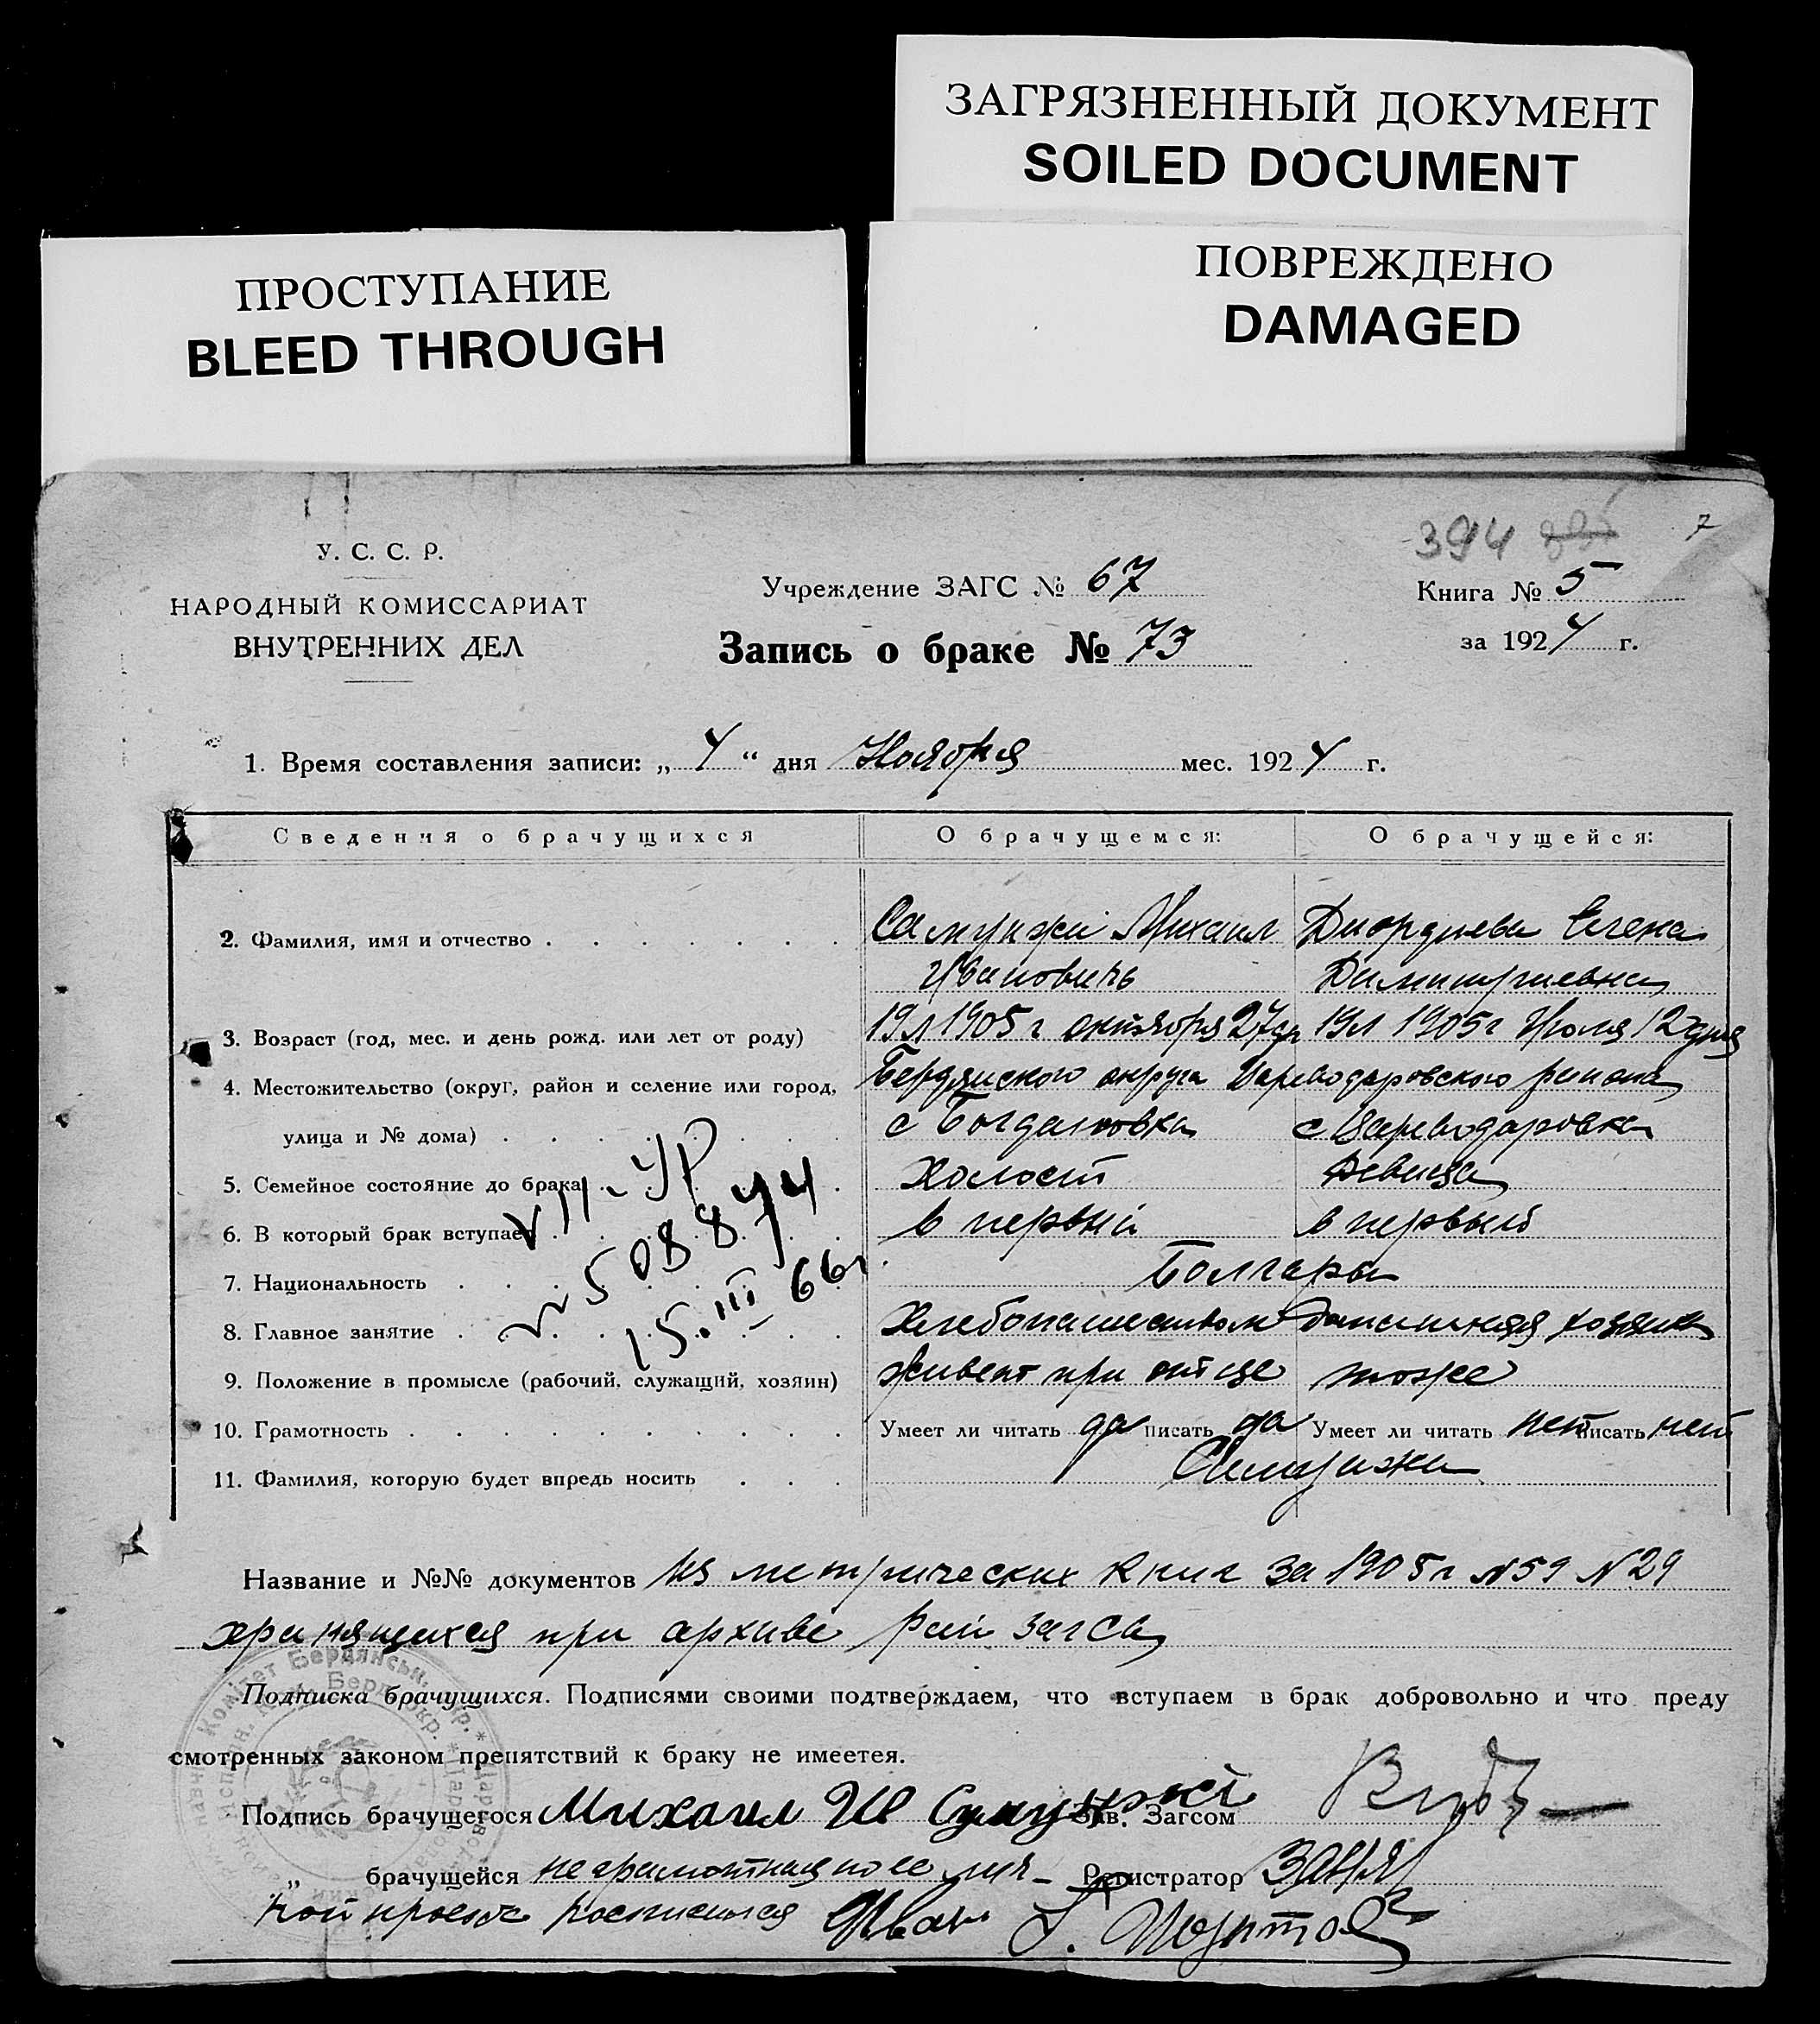 ЗАГРЯЗНЕННЫЙ ДОКУМЕНТ
SOILED DOCUMENT
ПРОСТУПАНИЕ
BLEED THROUGH
ПОВРЕЖДЕНО
DAMAGED
394
7
У. С. С. Р.
НАРОДНЫЙ КОМИССАРИАТ
ВНУТРЕННИХ ДЕЛ
Учреждение ЗАГС № 67
Запись о браке № 73
Книга № 5
за 1924 г.
1. Время составления записи: „ 4 “ дня Ноября мес. 1924 г.
Сведения о брачущихся О брачущемся: О брачущейся:
2. Фамилия, имя и отчество Самунжи Михаил Диордиева Елена
Ивановичь Димитриевна
3. Возраст (год, мес. и день рожд. или лет от роду) 19 л 1905 г октября 27 дн 19 л 1905 г Июля 12 дня
4. Местожительство (округ, район и селение или город, Бердянского округа Цареводаровского района
улица и № дома) с Богдановка с Цареводаровка
5. Семейное состояние до брака холост девица
6. В который брак вступает в первый в первый
7. Национальность Болгары
8. Главное занятие Хлебопашеством домашняя хозяйка
9. Положение в промысле (рабочий, служащий, хозяин) живет при отце тоже
10. Грамотность Умеет ли читать да писать да Умеет ли читать нет писать нет
11. Фамилия, которую будет впредь носить Самунжи
VII-УР
№ 508874
15.III 66 г
Название и №№ документов из метрических книг за 1905 г № 59 № 29
хранящихся при архиве рай загса
Подписка брачущихся. Подписями своими подтверждаем, что вступаем в брак добровольно и что преду
смотренных законом препятствий к браку не имеется.
Подпись брачущегося Михаил Ив Самунжи Зав. Загсом
„ брачущейся неграмотная по ее лич- Регистратор
ной просьбе расписался Иван